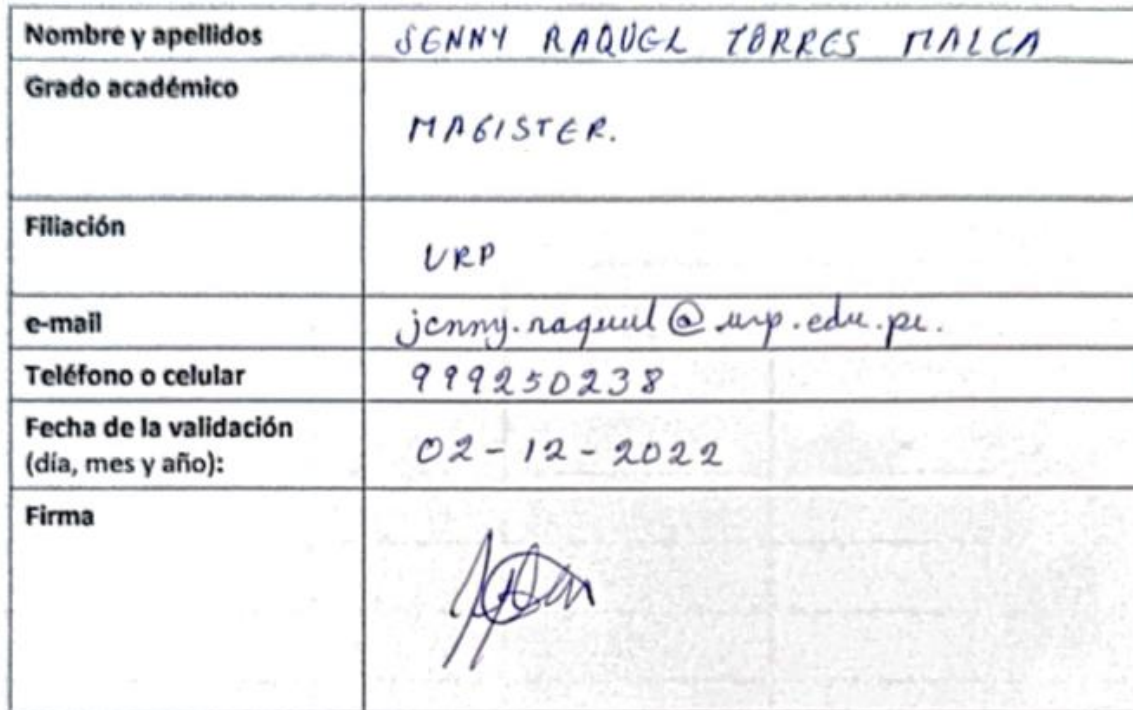 Nombre y apellidos JENNY RAQUEL TORRES MALCA
Grado académico
MAGISTER.
Filiación
URP
e-mail jenny.raquel@urp.edu.pe.
Teléfono o celular 999250238
Fecha de la validación
(día, mes y año): 02-12-2022
Firma